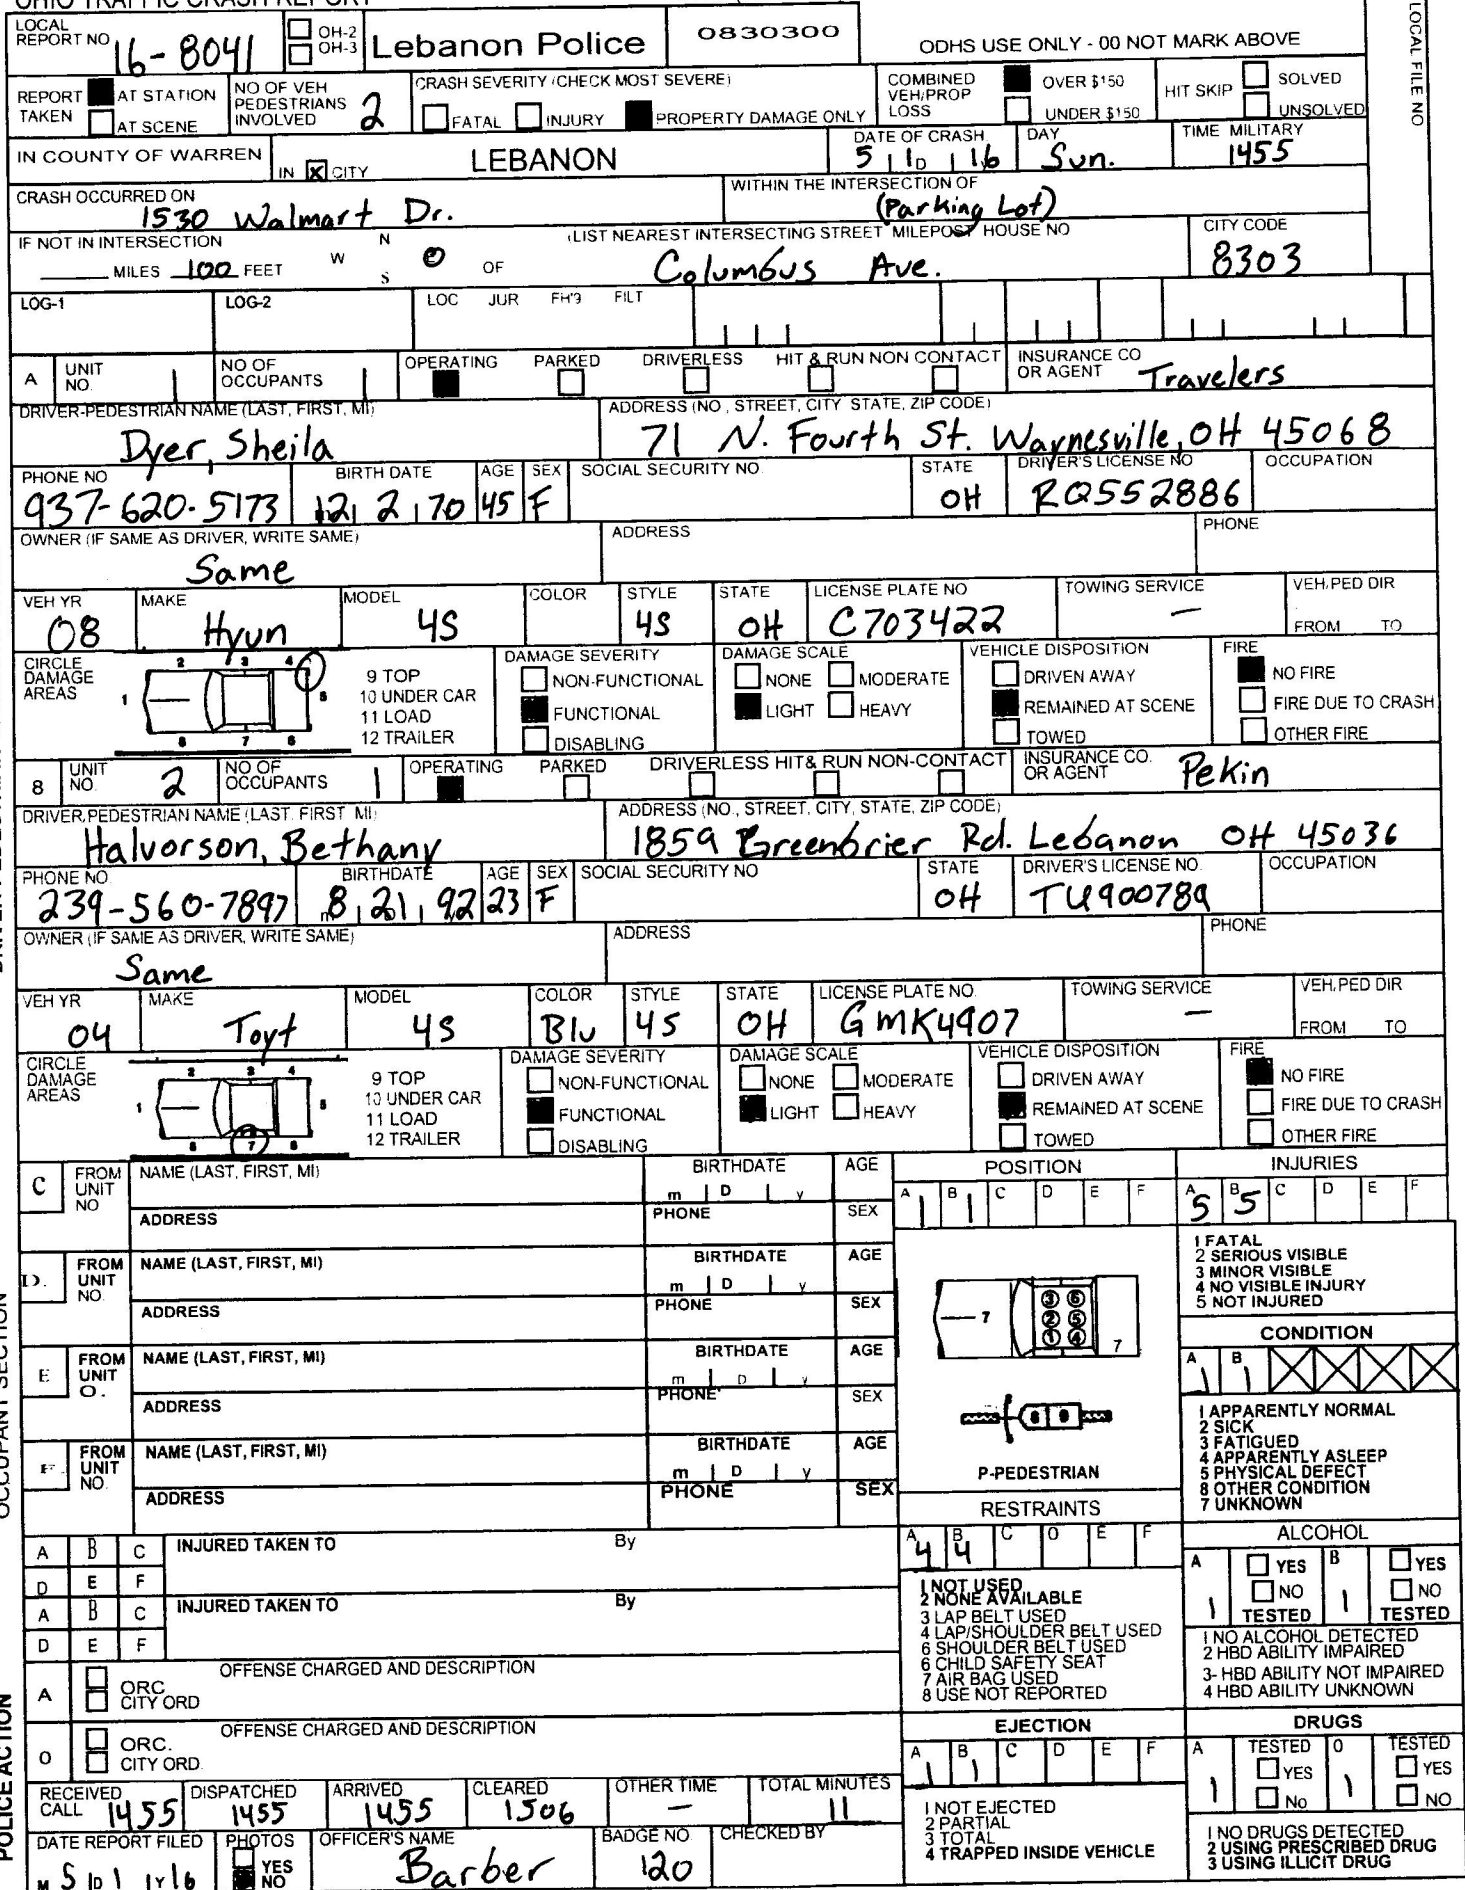 OHIO TRAFFIC CRASH REPORT
LOCAL REPORT NO 16-8041 OH-2 OH-3 Lebanon Police 0830300 ODHS USE ONLY - 00 NOT MARK ABOVE
LOCAL FILE NO
REPORT TAKEN AT STATION AT SCENE NO OF VEH PEDESTRIANS INVOLVED 2 CRASH SEVERITY (CHECK MOST SEVERE) FATAL INJURY PROPERTY DAMAGE ONLY COMBINED VEH/PROP LOSS OVER $150 UNDER $150 HIT SKIP SOLVED UNSOLVED
IN COUNTY OF WARREN IN X CITY LEBANON DATE OF CRASH 5 1 D 16 DAY Sun. TIME MILITARY 1455
CRASH OCCURRED ON 1530 Walmart Dr. WITHIN THE INTERSECTION OF (Parking Lot)
IF NOT IN INTERSECTION MILES 100 FEET N W S OF (LIST NEAREST INTERSECTING STREET MILEPOST HOUSE NO Columbus Ave. CITY CODE 8303
LOG-1 LOG-2 LOC JUR FH'9 FILT
A UNIT NO. 1 NO OF OCCUPANTS 1 OPERATING PARKED DRIVERLESS HIT & RUN NON CONTACT INSURANCE CO OR AGENT Travelers
DRIVER-PEDESTRIAN NAME (LAST, FIRST, MI) Dyer, Sheila ADDRESS (NO , STREET, CITY STATE, ZIP CODE) 71 N. Fourth St. Waynesville, OH 45068
PHONE NO 937-620-5173 BIRTH DATE 12 2 70 AGE 45 SEX F SOCIAL SECURITY NO. STATE OH DRIVER'S LICENSE NO RQ552886 OCCUPATION
OWNER (IF SAME AS DRIVER, WRITE SAME) Same ADDRESS PHONE
VEH YR 08 MAKE Hyun MODEL 4S COLOR STYLE 4S STATE OH LICENSE PLATE NO C703422 TOWING SERVICE — VEH/PED DIR FROM TO
CIRCLE DAMAGE AREAS 1 2 3 4 5 6 7 8 9 TOP 10 UNDER CAR 11 LOAD 12 TRAILER DAMAGE SEVERITY NON-FUNCTIONAL FUNCTIONAL DISABLING DAMAGE SCALE NONE MODERATE LIGHT HEAVY VEHICLE DISPOSITION DRIVEN AWAY REMAINED AT SCENE TOWED FIRE NO FIRE FIRE DUE TO CRASH OTHER FIRE
8 UNIT NO. 2 NO OF OCCUPANTS 1 OPERATING PARKED DRIVERLESS HIT& RUN NON-CONTACT INSURANCE CO. OR AGENT Pekin
DRIVER, PEDESTRIAN NAME (LAST. FIRST MI) Halvorson, Bethany ADDRESS (NO., STREET, CITY, STATE, ZIP CODE) 1859 Greenbrier Rd. Lebanon OH 45036
PHONE NO. 239-560-7897 BIRTHDATE 8 21 92 AGE 23 SEX F SOCIAL SECURITY NO STATE OH DRIVER'S LICENSE NO. TU900789 OCCUPATION
OWNER (IF SAME AS DRIVER, WRITE SAME) Same ADDRESS PHONE
VEH YR 04 MAKE Toyt MODEL 4S COLOR Blu STYLE 4S STATE OH LICENSE PLATE NO. GMK4907 TOWING SERVICE — VEH, PED DIR FROM TO
CIRCLE DAMAGE AREAS 1 2 3 4 5 6 7 8 9 TOP 10 UNDER CAR 11 LOAD 12 TRAILER DAMAGE SEVERITY NON-FUNCTIONAL FUNCTIONAL DISABLING DAMAGE SCALE NONE MODERATE LIGHT HEAVY VEHICLE DISPOSITION DRIVEN AWAY REMAINED AT SCENE TOWED FIRE NO FIRE FIRE DUE TO CRASH OTHER FIRE
OCCUPANT SECTION
C FROM UNIT NO NAME (LAST, FIRST, MI) BIRTHDATE m D y AGE
ADDRESS PHONE SEX
D. FROM UNIT NO. NAME (LAST, FIRST, MI) BIRTHDATE m D y AGE
ADDRESS PHONE SEX
E FROM UNIT O. NAME (LAST, FIRST, MI) BIRTHDATE m D y AGE
ADDRESS PHONE SEX
F. FROM UNIT NO. NAME (LAST, FIRST, MI) BIRTHDATE m D y AGE
ADDRESS PHONE SEX
POSITION
A 1 B 1 C D E F
7 3 6 2 5 1 4 7
8 9
P-PEDESTRIAN
INJURIES
A 5 B 5 C D E F
1 FATAL
2 SERIOUS VISIBLE
3 MINOR VISIBLE
4 NO VISIBLE INJURY
5 NOT INJURED
CONDITION
A 1 B 1
1 APPARENTLY NORMAL
2 SICK
3 FATIGUED
4 APPARENTLY ASLEEP
5 PHYSICAL DEFECT
8 OTHER CONDITION
7 UNKNOWN
RESTRAINTS
A 4 B 4 C O E F
1 NOT USED
2 NONE AVAILABLE
3 LAP BELT USED
4 LAP/SHOULDER BELT USED
6 SHOULDER BELT USED
6 CHILD SAFETY SEAT
7 AIR BAG USED
8 USE NOT REPORTED
ALCOHOL
A 1 YES NO TESTED B 1 YES NO TESTED
1 NO ALCOHOL DETECTED
2 HBD ABILITY IMPAIRED
3- HBD ABILITY NOT IMPAIRED
4 HBD ABILITY UNKNOWN
A B C D E F INJURED TAKEN TO By
A B C D E F INJURED TAKEN TO By
POLICE ACTION
A ORC CITY ORD OFFENSE CHARGED AND DESCRIPTION
O ORC. CITY ORD. OFFENSE CHARGED AND DESCRIPTION
EJECTION
A 1 B 1 C D E F
1 NOT EJECTED
2 PARTIAL
3 TOTAL
4 TRAPPED INSIDE VEHICLE
DRUGS
A 1 TESTED YES No O 1 TESTED YES NO
1 NO DRUGS DETECTED
2 USING PRESCRIBED DRUG
3 USING ILLICIT DRUG
RECEIVED CALL 1455 DISPATCHED 1455 ARRIVED 1455 CLEARED 1506 OTHER TIME — TOTAL MINUTES 11
DATE REPORT FILED M 5 D 1 Y 16 PHOTOS YES NO OFFICER'S NAME Barber BADGE NO 120 CHECKED BY